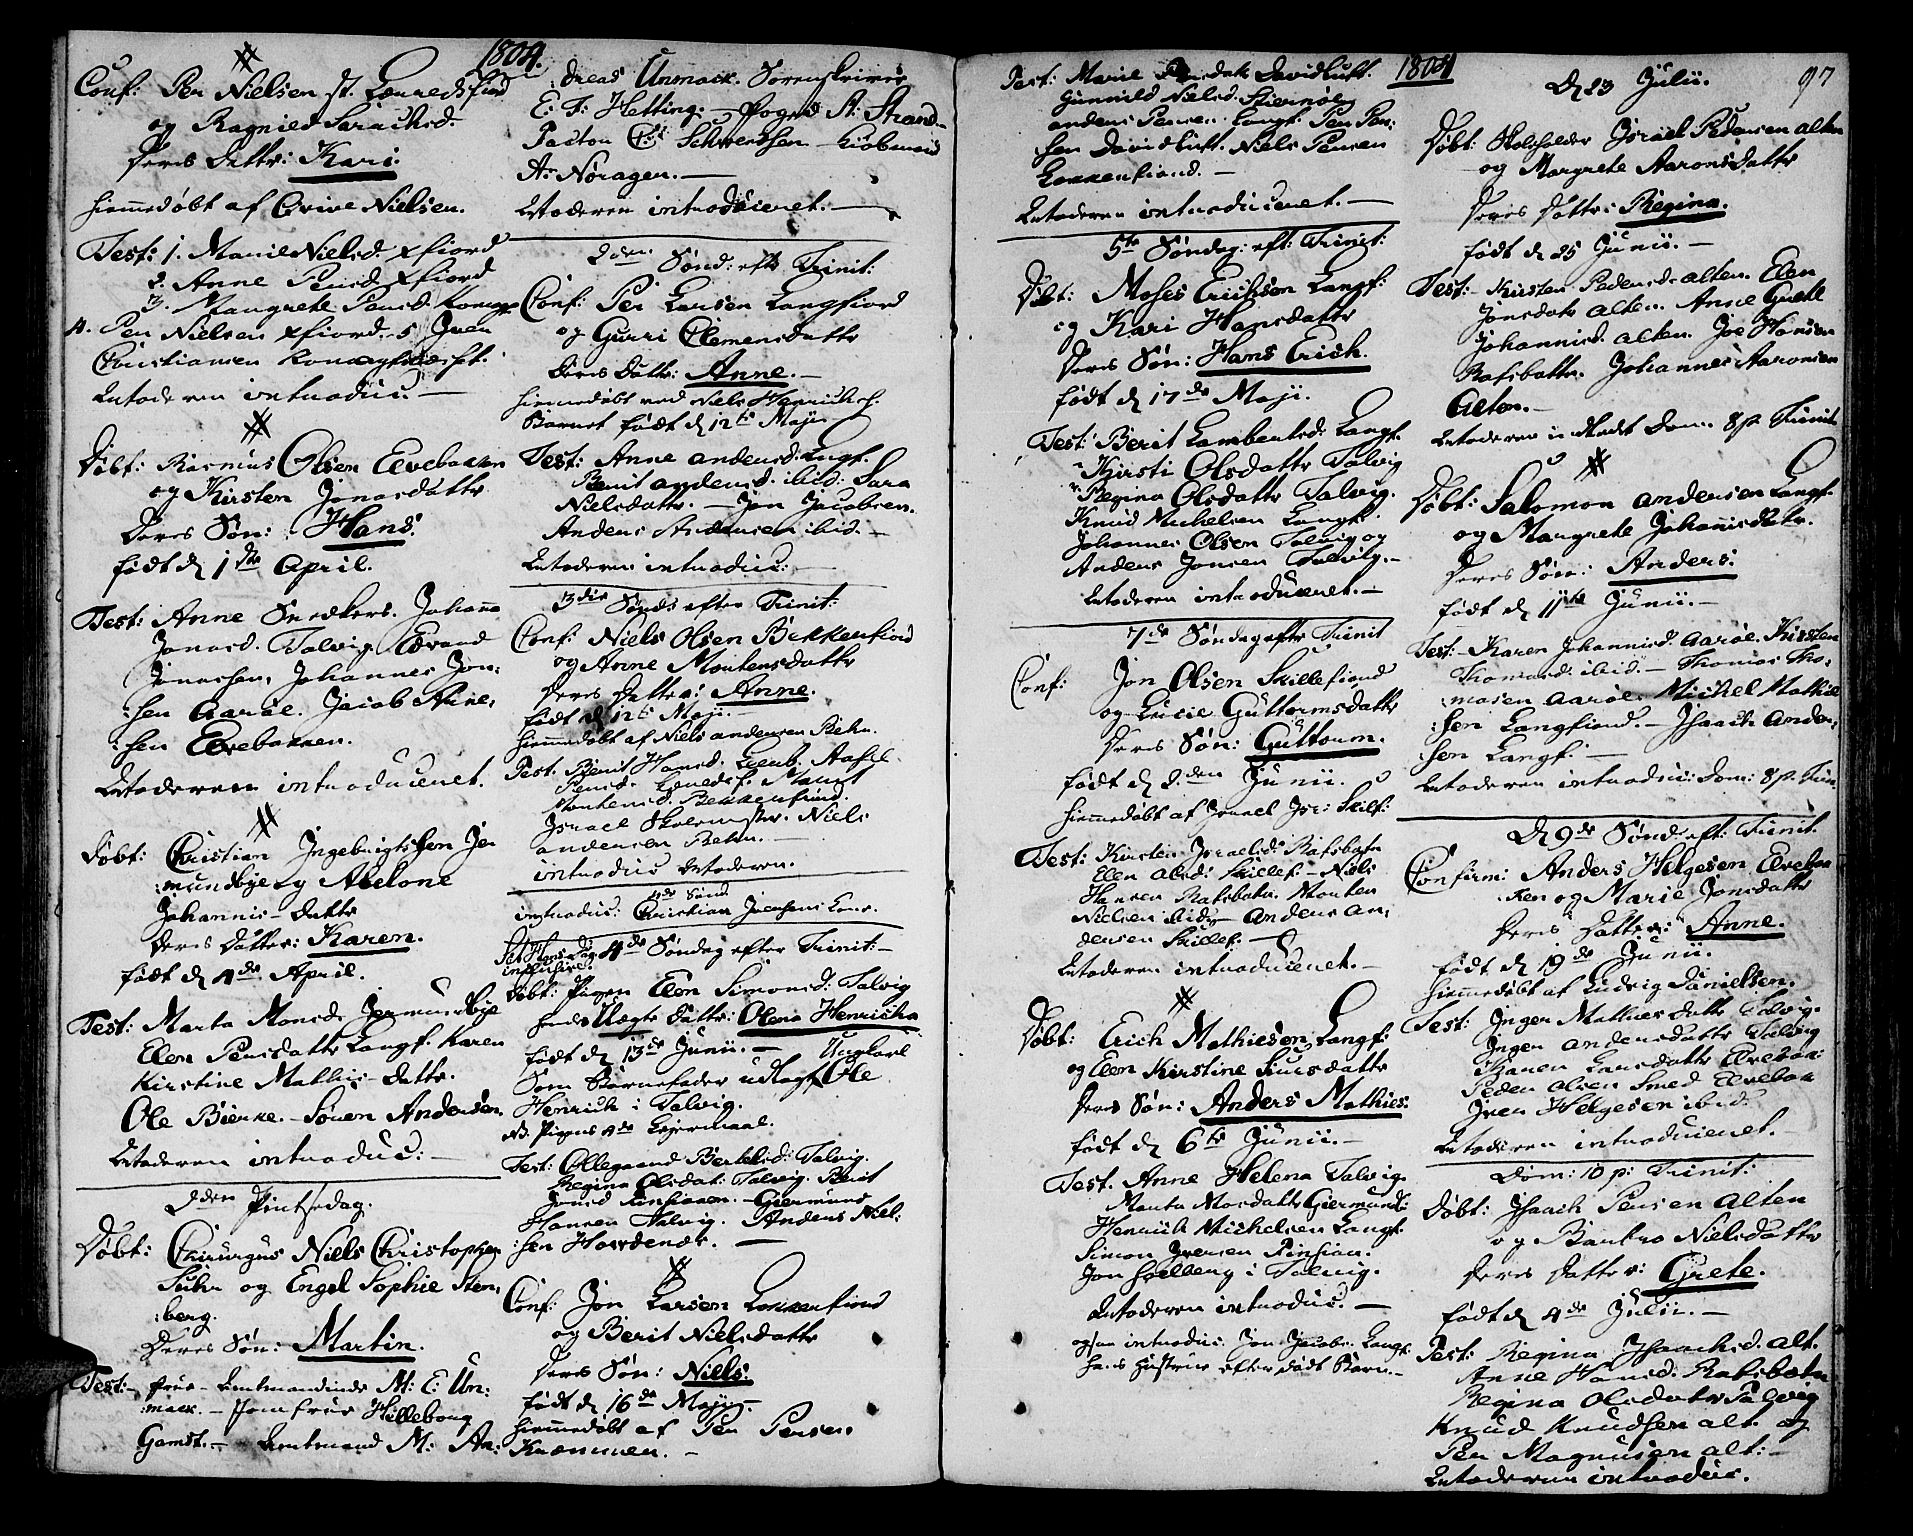 1804.
Conf: Per Nielsen st. Lerredsfiord
og Ragnild Sarachsd.
Deres Datter: Kari.
hiemmedøbt af Evive Nielsen.
Test: 1. Marie Nielsd. xfiord
2. Anne Persd. xfiord
3. Margrete Persd. Komag-
4. Per Nielsen xfiord. 5. Iver
Christiansen Komagf
Letoderen introduc. —
Døbt: Rasmus Olsen Elvebakken
og Kirsten Jonasdatter
Deres Søn: Hans.
født d 1ste April.
Test: Anne Snedkers. Johanna
Jonasd. Talvig. Evand
Jonassen, Johannes Jon:
:sen Aarøe. Jacob
:sen Elvebakken.
Letoderen introduceret.
Døbt: Christian Ingebrigtssen Jer
:mundbye og Abelone
Johannis-Datter
Deres Datter: Karen.
født d 4de April.
Test: Marta Monsd. Jermundbye
Elen Persdatter Langf. Karen
Kirstine Mathis-Datter.
Ole Bierke. Søren Andersen.
Letoderen introduc: —
2den Pintsedag.
Døbt: Chirurgus Niels Christopher
Suhr og Engel Sophie Sten:
:berg.
Deres Søn: Martin.
Test: frue-Leutnantinde M: E: Un:
:mack. — Jomfrue Hilleborg
Gamst. — Leutnand M: An:
:dreas Unmack. Sorenskriver
E. F: Hetting. — Foged A: Strand.
Pastor C: Schwensen — Kiøbmand
A: Noragen. —
Letoderen introduceret. —
2den Sønd: eft: Trinit:
Conf: Per Larsen Langfiord
og Gurri Clemensdatter
Deres Datter: Anne. —
hiemmedøbt ved Niels Henrichs.
Barnet født d 12te Maji
Test: Anne Andersd. Langf.
Berit Andersd. ibid: Sara
Nielsdatter. — Jon Jacobsen.
Anders Andersen ibid. —
Letoderen introduc: —
3die Sønd: efter Trinit:
Conf: Niels Olsen Bekkerfiord
og Anne Mortensdatter
Deres Datter: Anne.
født d 12te Maji. —
hiemmedøbt af Niels Andersen Rehn.
Test. Berit Hansd. Leerb.
Persd. Lerredsf. Marit
Mortensd. Bekkerfiord.
Israel Skolemester. Niels
Andersen Rehn. —
introduc Letoderen.
4de Sønd
introduc: Christian Jversens Kone.
St. Hans Dag 4de Søndag efter Trinit: —
inclusive.
Døbt: Pigen Elen Simonsd: Talvig
hendes Uægte Datter: Olena Henricha
født d 13de Junii. — Ungkarl
Som Barnefader udlagt Ole
Henrich i Talvig.
NB. Pigens 4de Leiermaal.
Test: Ollegaard Bertelsd: Talvig.
Regina Olsdat: Talvig. Berit
Jonsd
Hansen Talvig. Anders Niel:
:sen
Conf: Jon Larsen Lokkerfiord
og Berit Nielsdatter
Deres Søn: Niels.
født d 16de Maji. —
hiemmedøbt af Per Persen,
Kræmmer. —
1804
97
Test: Marie Persdatr Davidluft.
Gunnild Nielsd. Stiernøe
Anders Persen Langf. Per Per:
sen Davidluft. Niels Persen
Lokkerfiord. —
Letoderen introduceret. —
5te Søndag: eft: Trinit:
Døbt: Moses Erichsen Langf:
og Kari Hansdatter
Deres Søn: Hans Erich.
født d 17de Maji.
Test: Berit Lambertsd. Langf.
Kirsti Olsdatter Talvig
Regina Olsdatter Talvig.
Knud Michelsen Langf.
Johannes Olsen Talvig og
Anders Jonsen Talvig. —
Letoderen introduceret. —
7de Søndag efter Trinit
Conf: Jon Olsen Skillefiord
og Lucie Guttormsdatter
Deres Søn: Guttorm.
født d 2den Junii.
hiemmedøbt af Israel Isr: Skillf:
Test: Kirsten Israelsd: Rafsbotn
Elen Olsd: Skillef: — Niels
Hansen Rafsbotn. Morten
Nielsen ibid — Anders An:
dersen Skillef. —
Letoderen introduceret. —
Døbt: Erich Mathiesen Langf:
og Elen Kirstine
Deres Søn: Anders Mathies.
født d 6te Junii. —
Test. Anne Helena Talvig.
Marta Monsdatter Giermunds:
Henrich Michelsen Langf.
Simon Iversen
Jon Holberg i Talvig.
Letoderen introduc. —
ogsaa introduc: Jon Jacobs: Langf:
hans Hustrue efter dødt Barn. —
D 23 Julii.
Døbt: Skoleholder Israel Pedersen Alten
og Margrete Aaronsdatter
Deres Datter: Regina.
født d 25 Junii. —
Test: Kirsten Pedersd. Alten. Elen
Jonsdatr Alten. Anne Grete
Johannisd. Alten. Joe Hansen
Rafsbotn. Johannes Aaronsen
Alten. —
Letoderen indledt Dom. 8 p. Trinit
Døbt: Salomon Andersen Langf.
og Margrete Johanisdatr.
Deres Søn: Anders.
født d 11te Junii. —
Test: Karen Johannisd. Aarøe. Kirsten
Thomasd. ibid — Thomas Tho:
masen Aarøe. Michel Mathie
:sen Langfiord. — Isaach Ander:
sen Langf: —
Letoderen introduc: Dom: 8 p. Trin.
D 9de Sønd: eft: Trinit.
Confirm: Anders Helgesen Elvebak
ken og Marie Jonsdatter
Deres Datter: Anne.
født d 19de Junii.
hiemmedøbt af Ludvig Danielsen.
Test: Inger Mathiesdatter Talvig.
Inger Andersdatter Talvig
Karen Larsdatter Elvebak:
Peder Olsen Smed Elvebak
Iver Helgesen ibid.
Letoderen introduceret. —
Dom: 10 p: Trinit:
Døbt: Isaach Persen Alten
og Barbro Nielsdatter
Deres Datter: Grete.
født d 4de Julii. —
Test: Regina Isaachsd. Alt.
Anne Hansd. Rafsbotn
Regina Olsdatr Talvig
Knud Knudsen Alt. og
Per Magnusen Alt: —
Letoderen introduc.